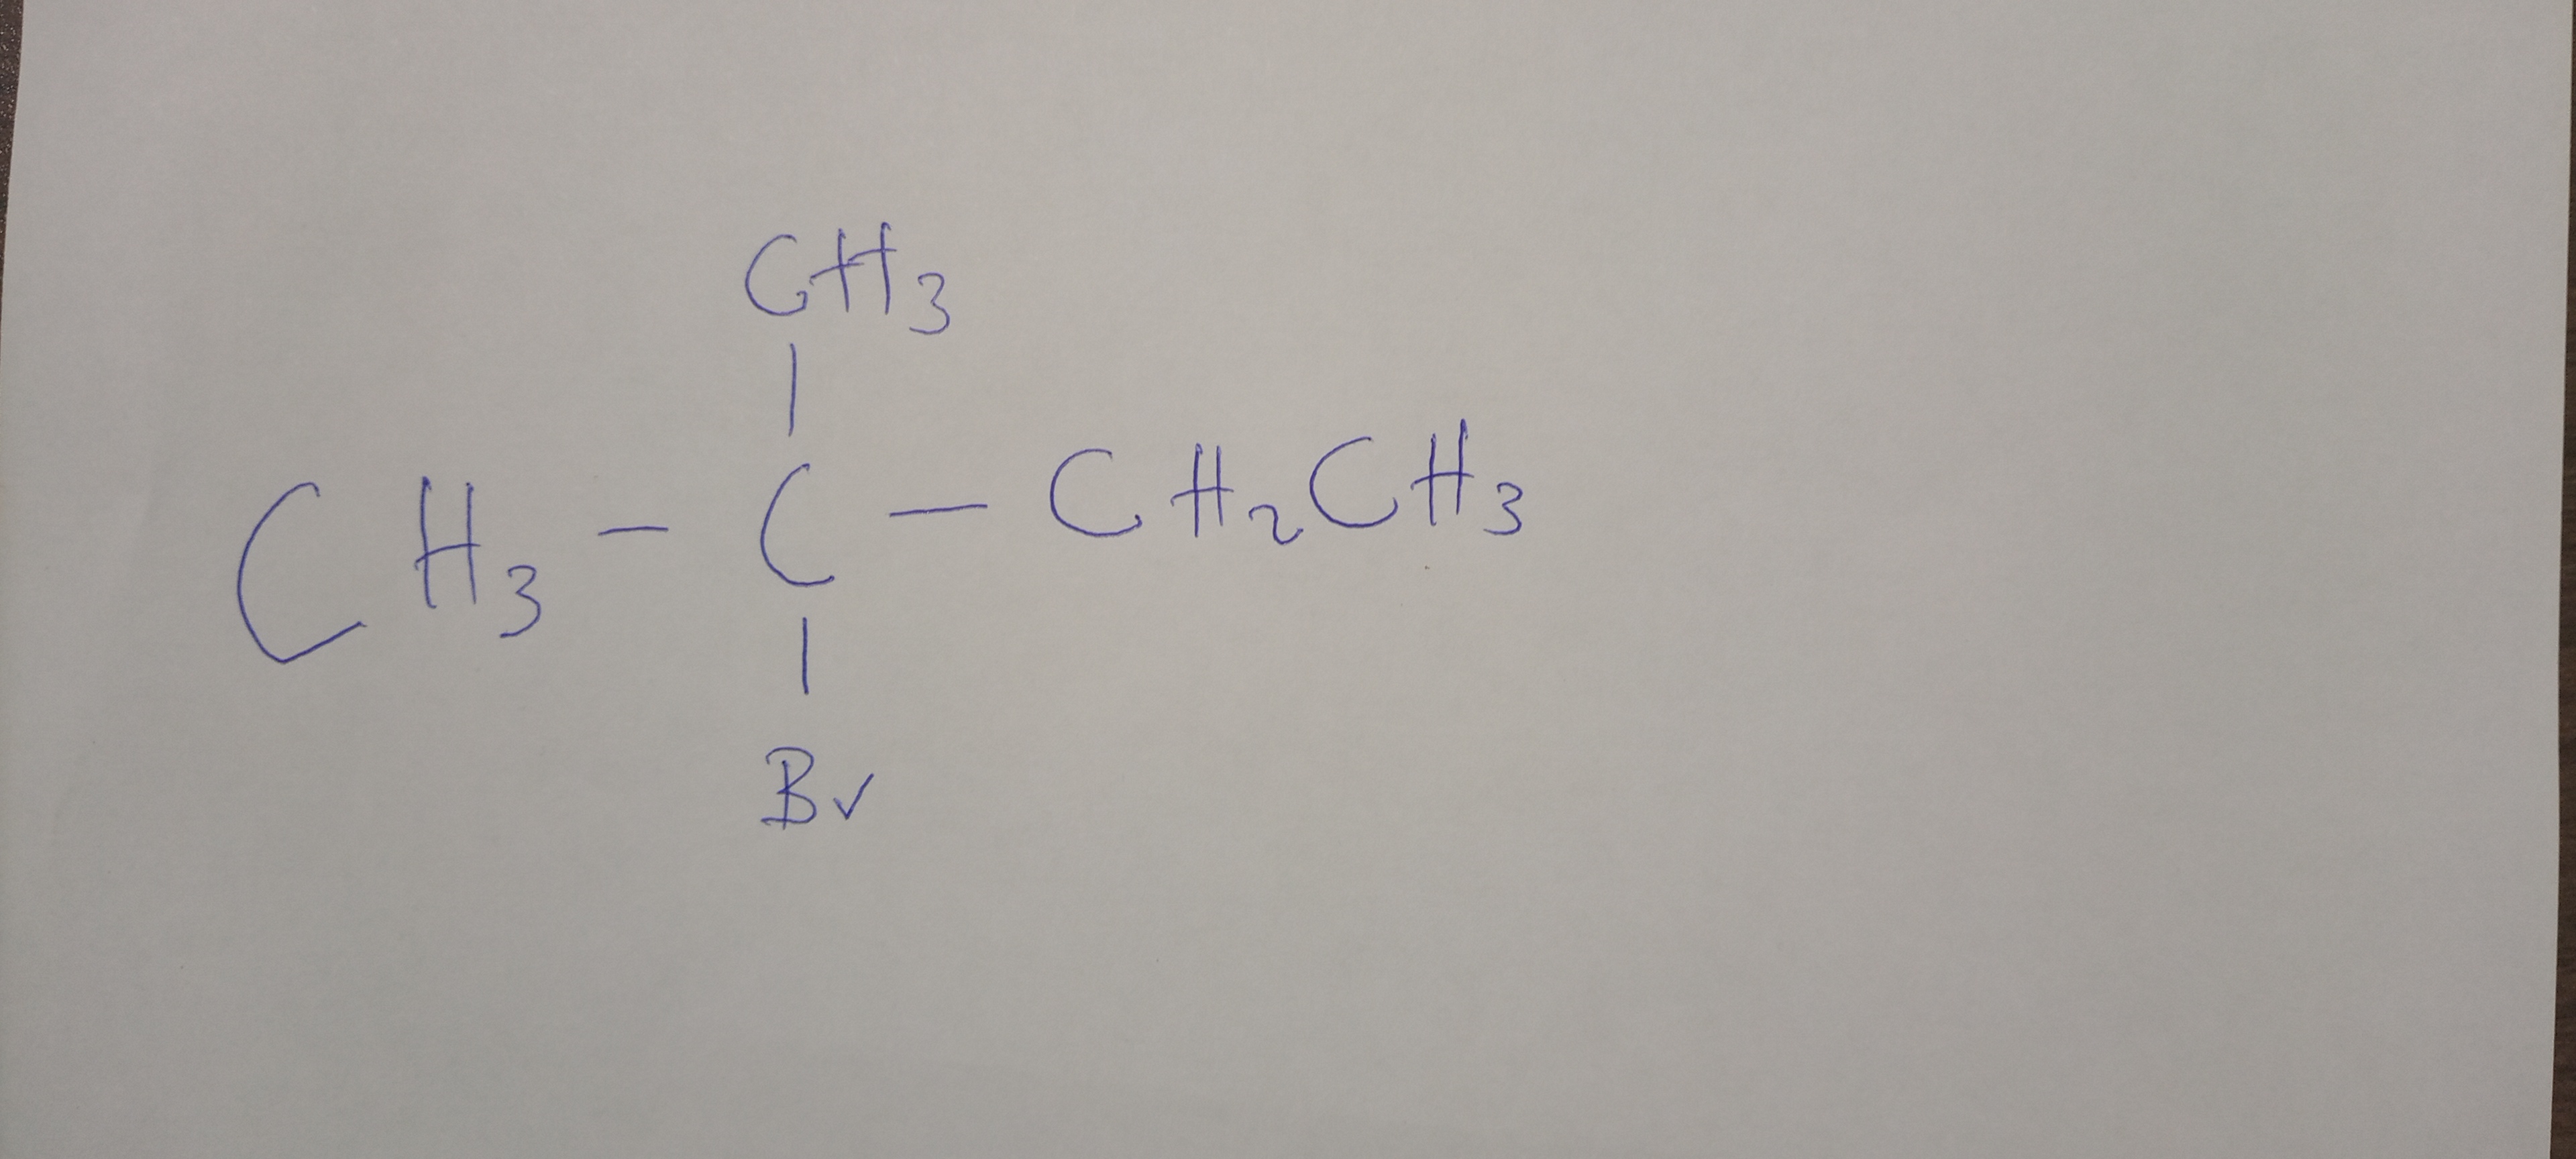 CH3
|
CH3 - C - CH2CH3
|
Br